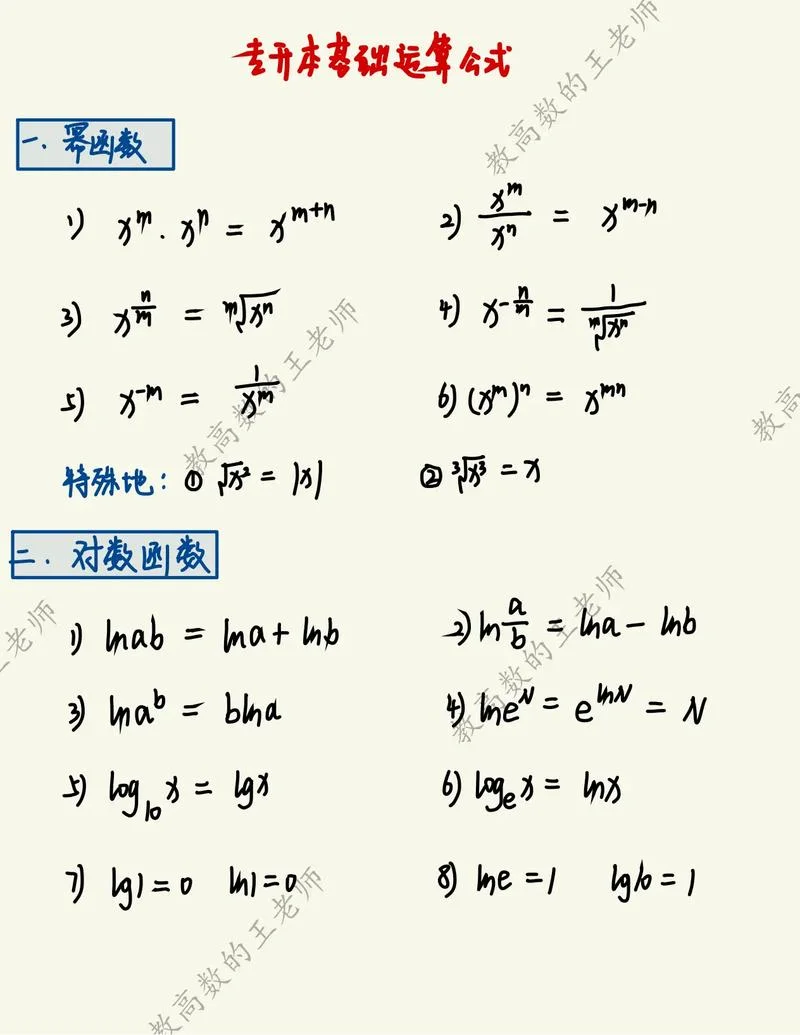 专升本基础运算公式
一、幂函数
1) x^m · x^n = x^{m+n}
2) \frac{x^m}{x^n} = x^{m-n}
3) x^{\frac{n}{m}} = \sqrt[m]{x^n}
4) x^{-\frac{n}{m}} = \frac{1}{\sqrt[m]{x^n}}
5) x^{-m} = \frac{1}{x^m}
6) (x^m)^n = x^{mn}
特殊地：① \sqrt{x^2} = |x|
② \sqrt[3]{x^3} = x
二、对数函数
1) lnab = lna + lnb
2) ln\frac{a}{b} = lna - lnb
3) lna^b = blna
4) lne^N = e^{lnN} = N
5) log_{10}x = lgx
6) log_e x = lnx
7) lg1 = 0 ln1 = 0
8) lne = 1 lg10 = 1
教高数的王老师
教高数的王老师
教高
王老师
教高数的王老师
教高数的王老师